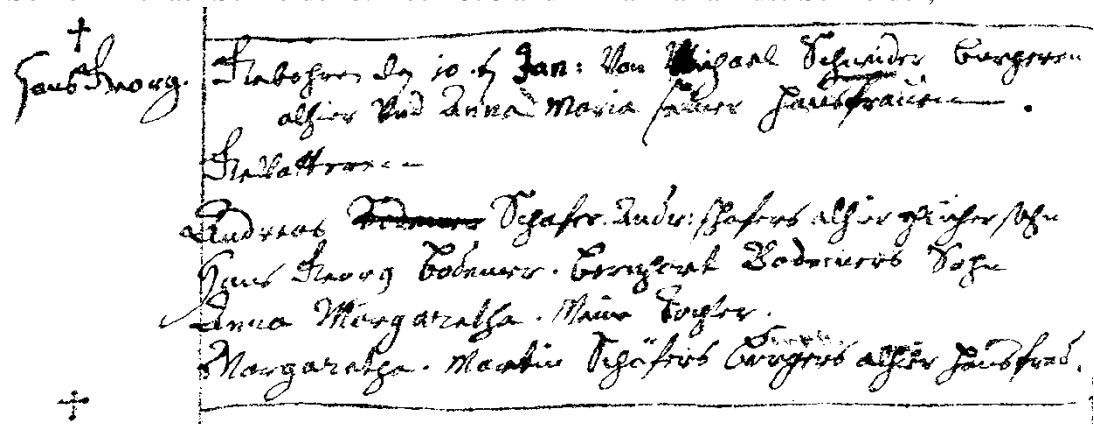 Hans Georg.
Gebohren den 10. t. Jan: Von Michael Schneider burgeren
alhier Und Anna Maria seiner Hausfrauen.
Gevatteren
Andreas Schafer. Andr: schafers alhier sohn
Hans Georg Bodemer. Bernhart Bodemers Sohn
Anna Margaretha. Meine Tochter.
Margaretha. Martin Schäfers burgers alhier Hausfrau.